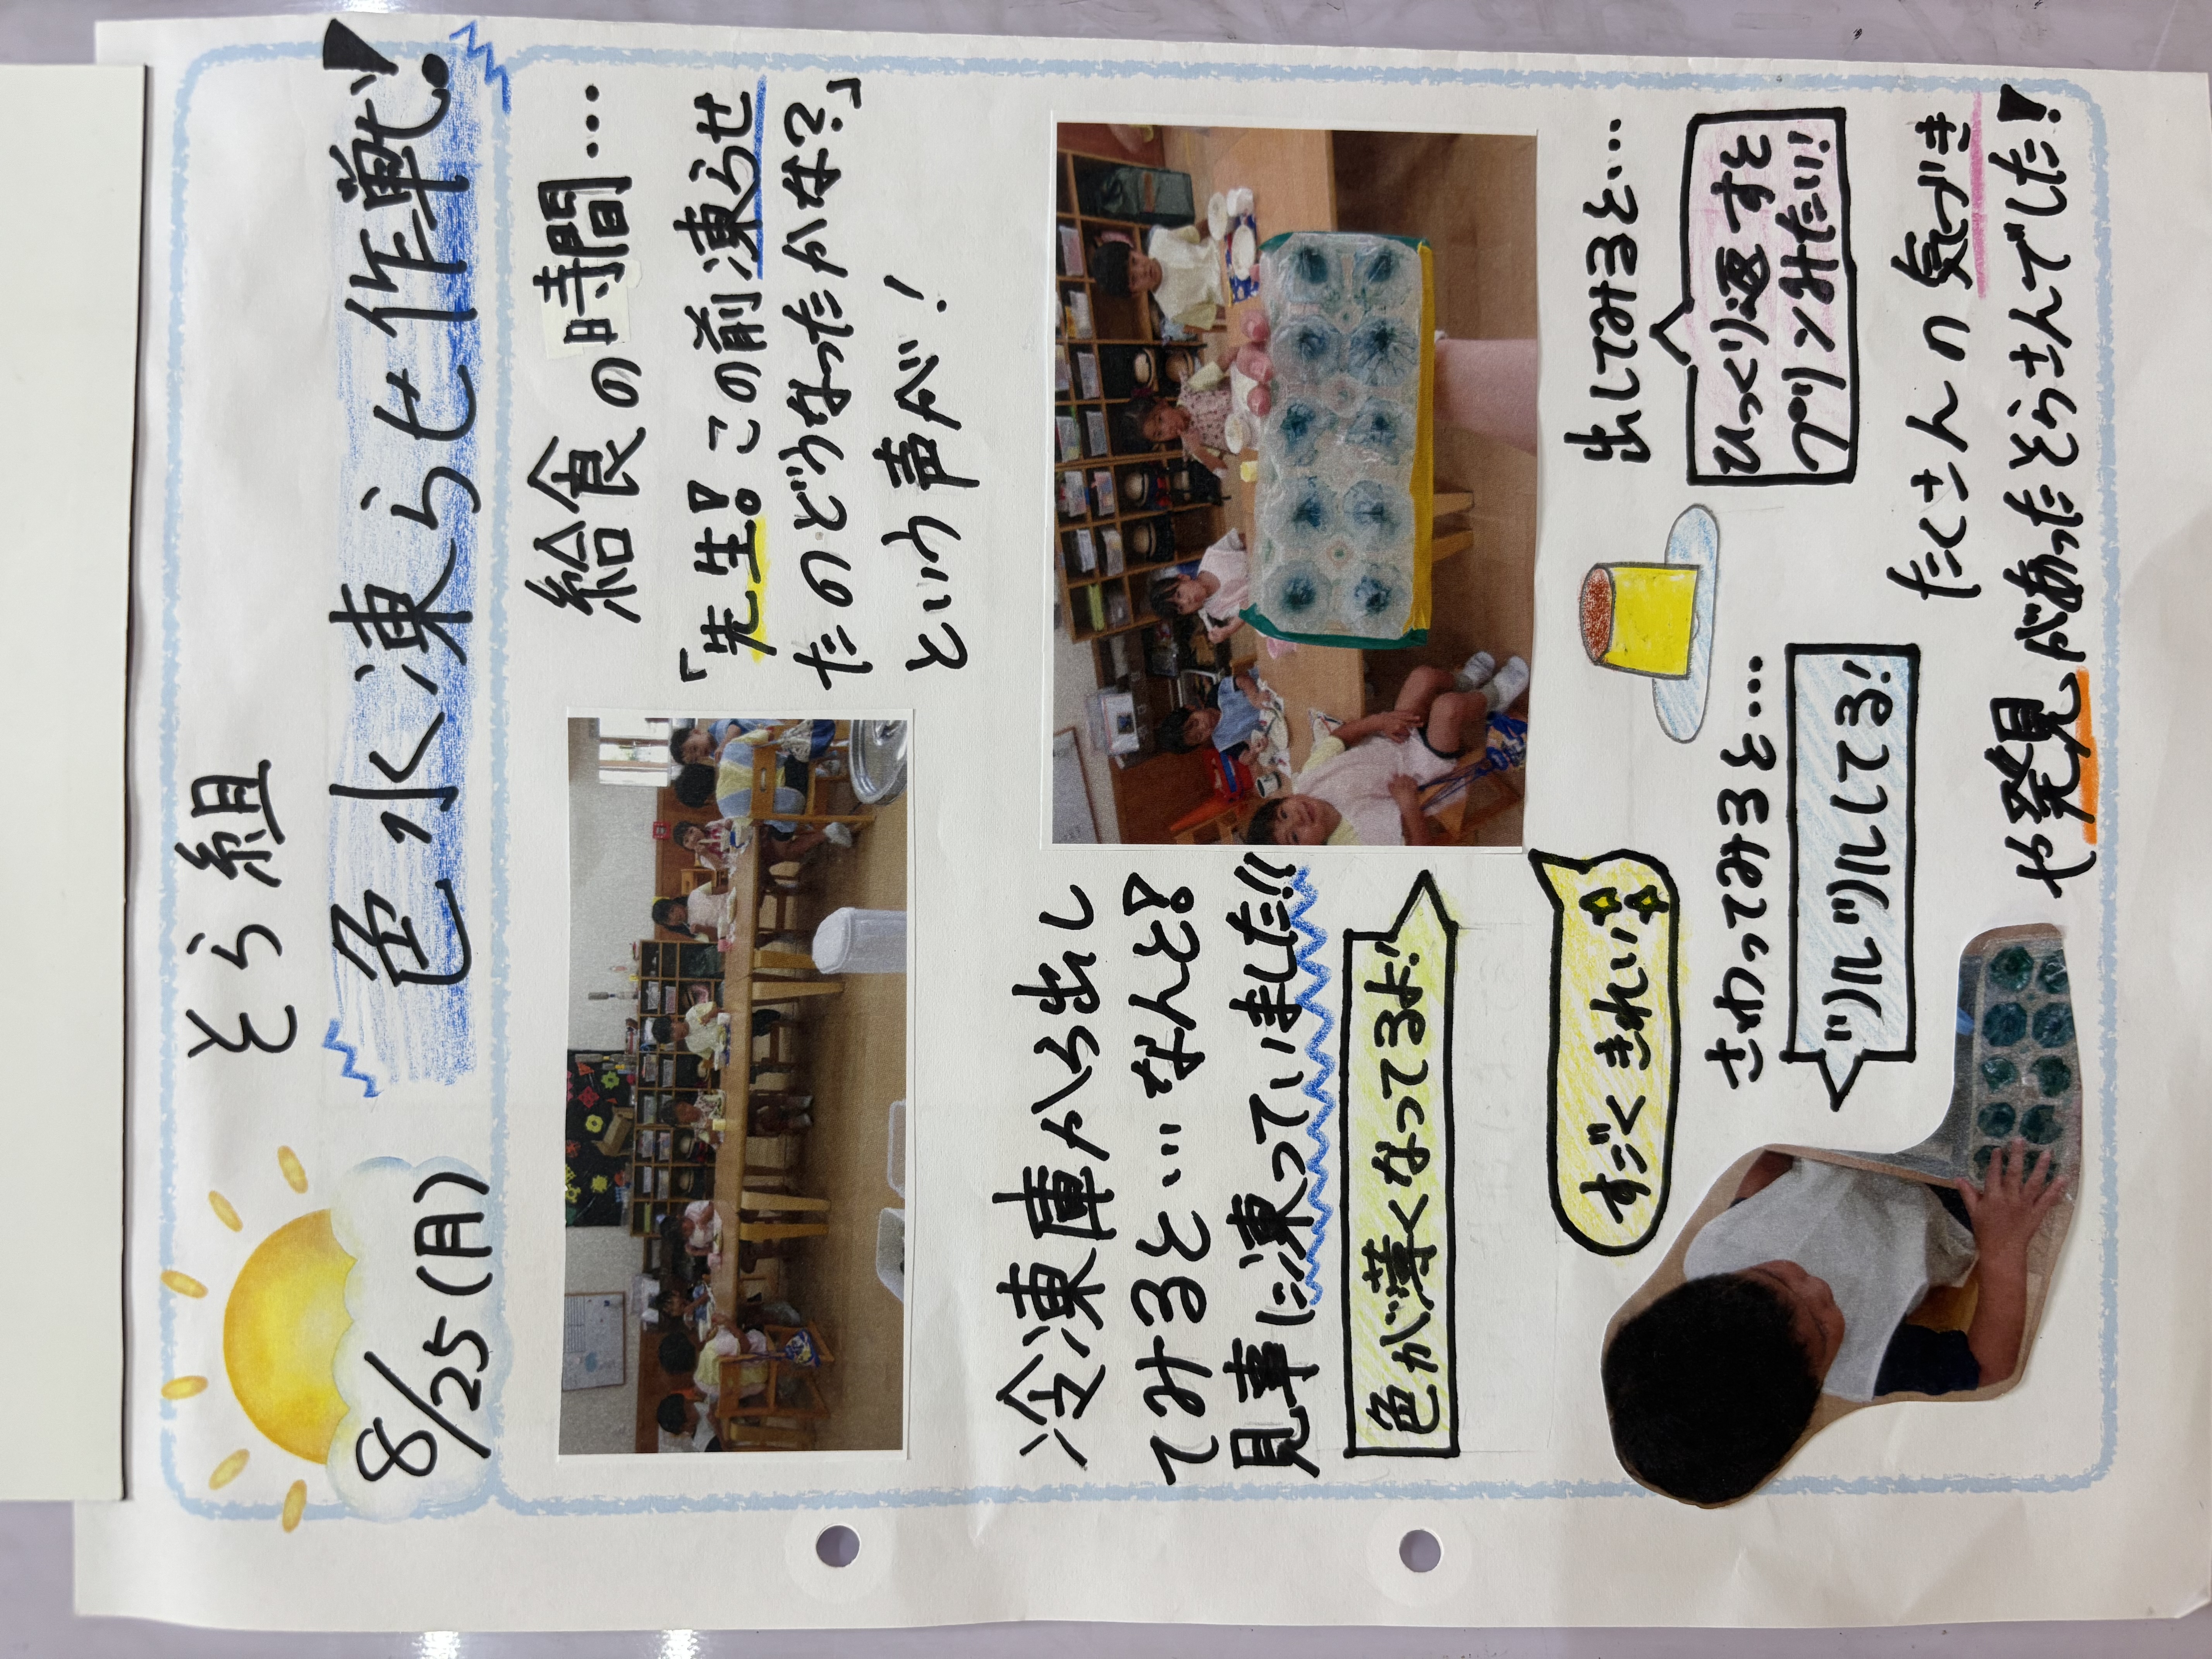 そら組
8/25(月)
色水凍らせ作戦!
給食の時間…
「先生!この前凍らせ
たのどうなったかな?」
という声が!
冷凍庫から出し
てみると…なんと!
見事に凍っていました!!
色が薄くなってるよ!
すごくきれい
出してみると…
ひっくり返すと
プリンみたい!
さわってみると…
ツルツルしてる!
たくさんの気づき
や発見があったそらさんでした!